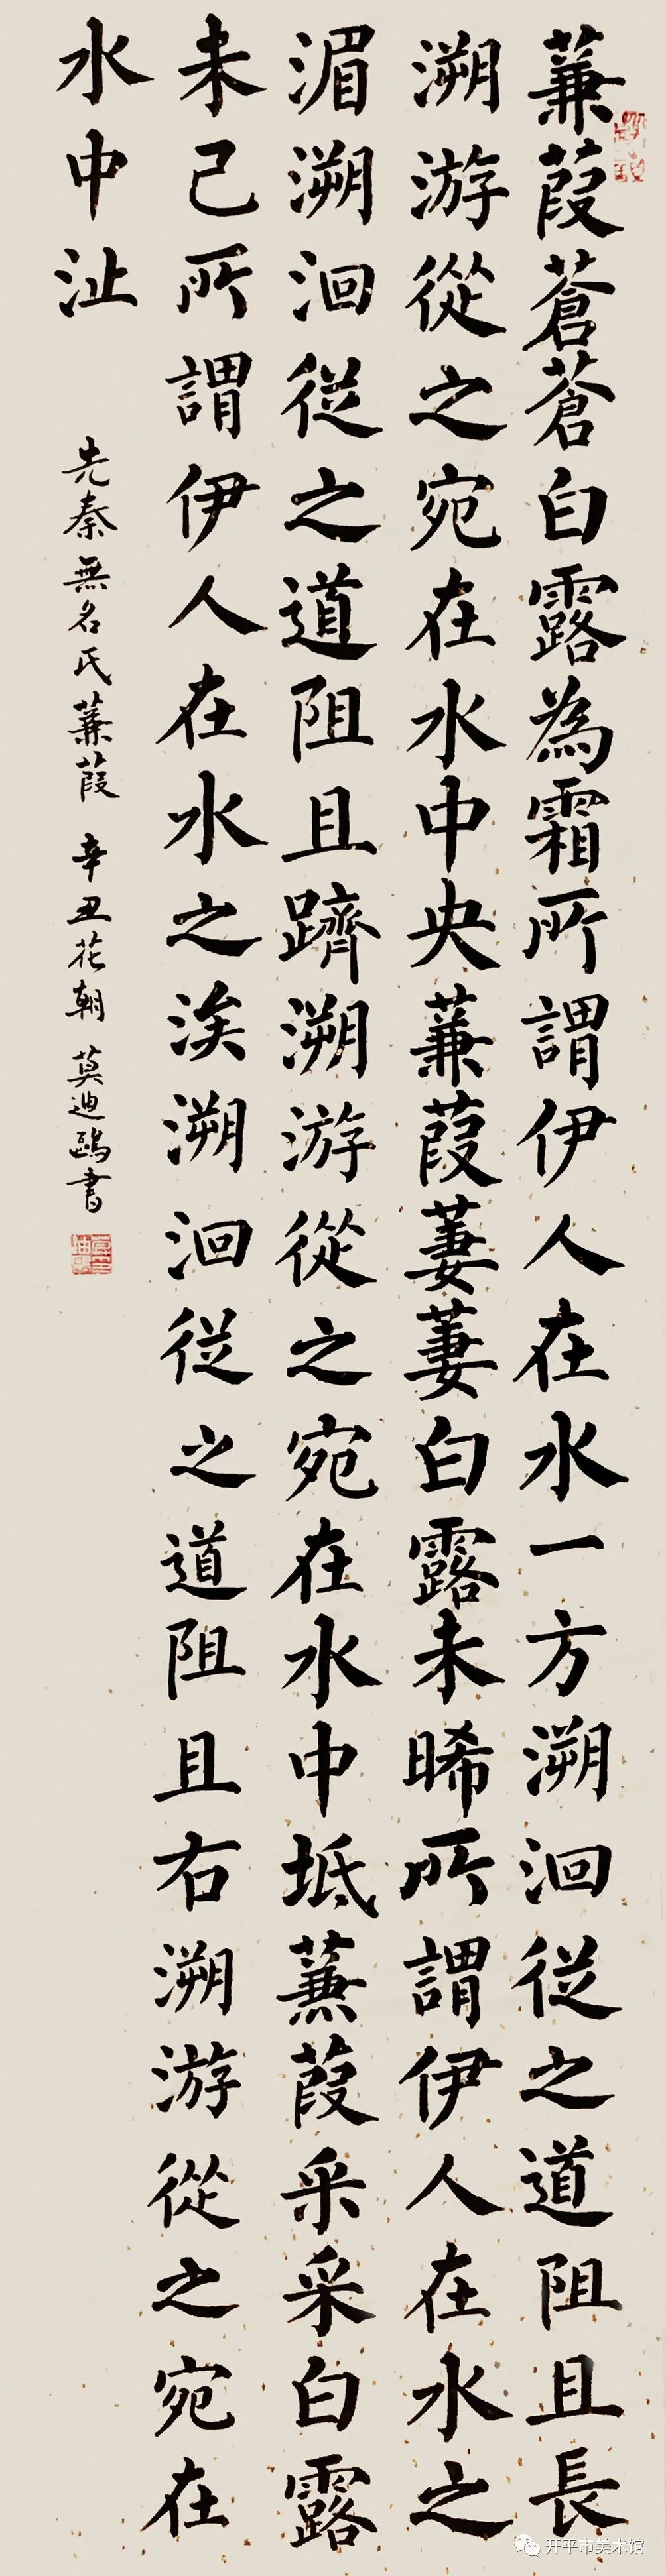 蒹葭蒼蒼白露為霜所謂伊人在水一方溯洄従之道阻且長
溯游從之宛在水中央蒹葭萋萋白露未晞所謂伊人在水之
湄溯洄従之道阻且躋溯游從之宛在水中坻蒹葭采采白露
未已所謂伊人在水之涘溯洄従之道阻且右溯游從之宛在
水中沚
先秦無名氏蒹葭 辛丑花朝 莫迪鷗書
开平市美术馆